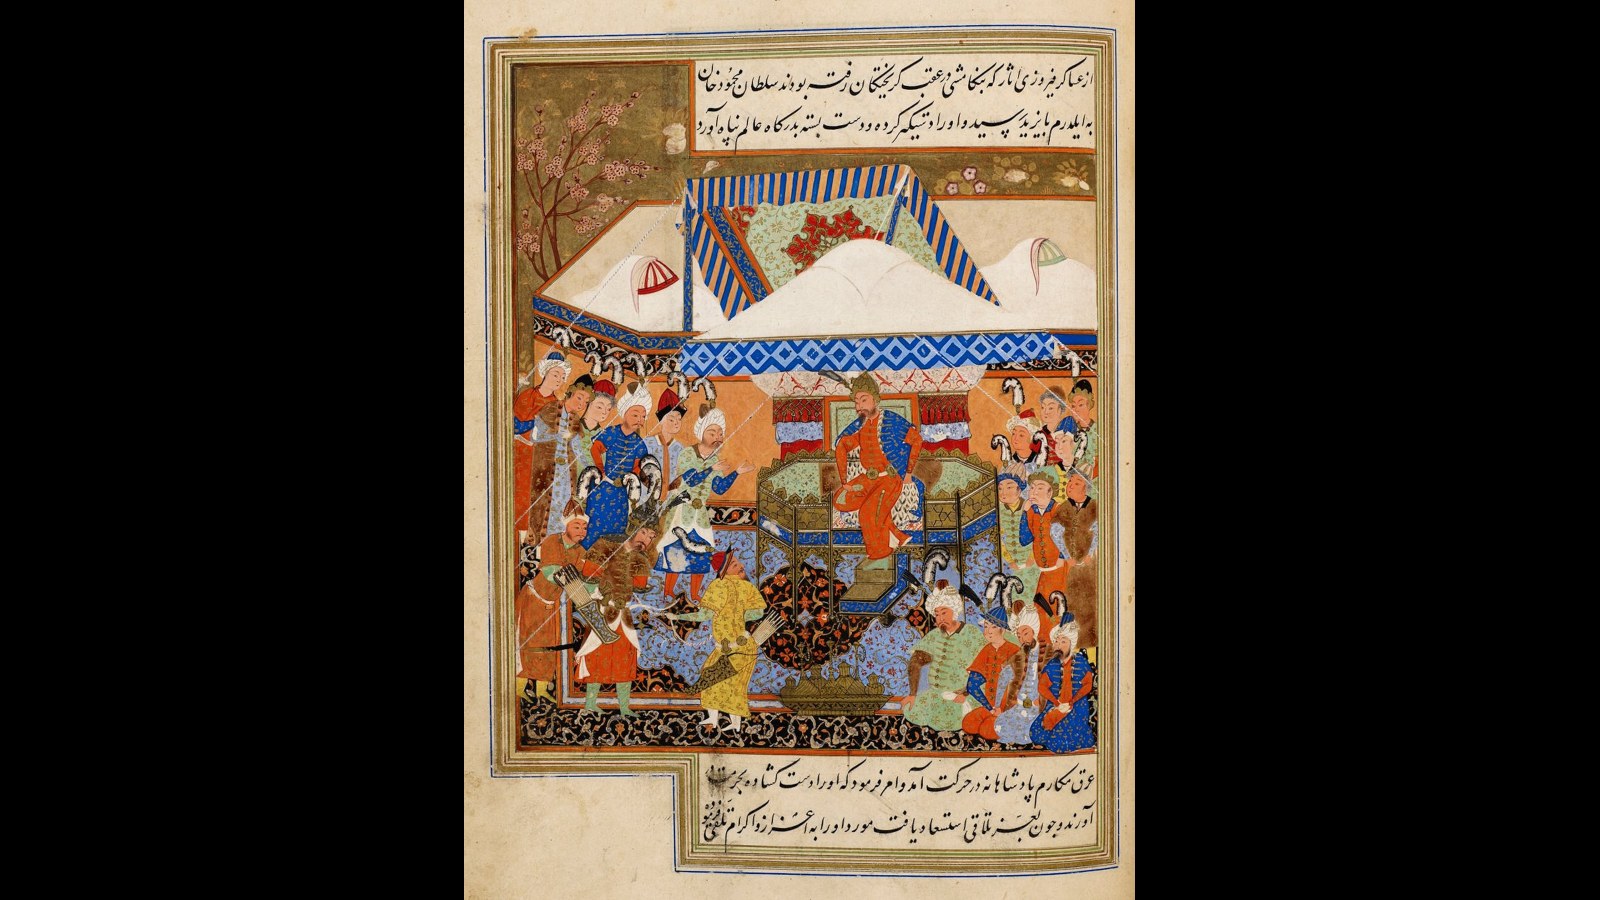 از عساکر فیروزی آثار که بتکامشی در عقب گریختگان رفته بودند سلطان محمود خان
به ایلدرم بایزید رسید و او را دستگیر کرده و دست بسته بدرگاه عالم پناه آورد
عرق مکارم پادشاهانه در حرکت آمد و امر فرمود که او را دست گشاده بحرمت
آورند و چون بعز تلاقی استسعاد یافت مورد او را به اعزاز و اکرام تلقی فرموده